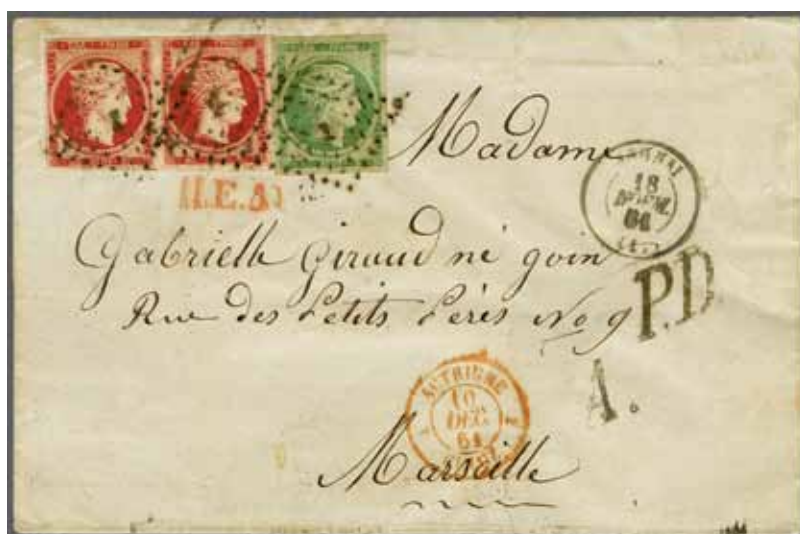 Madame
18
P.D.
Gabrielle Giraud né goin
Rue des Petits Pères No 9
A.
AUTRICHE
10
DEC
61
Marseille